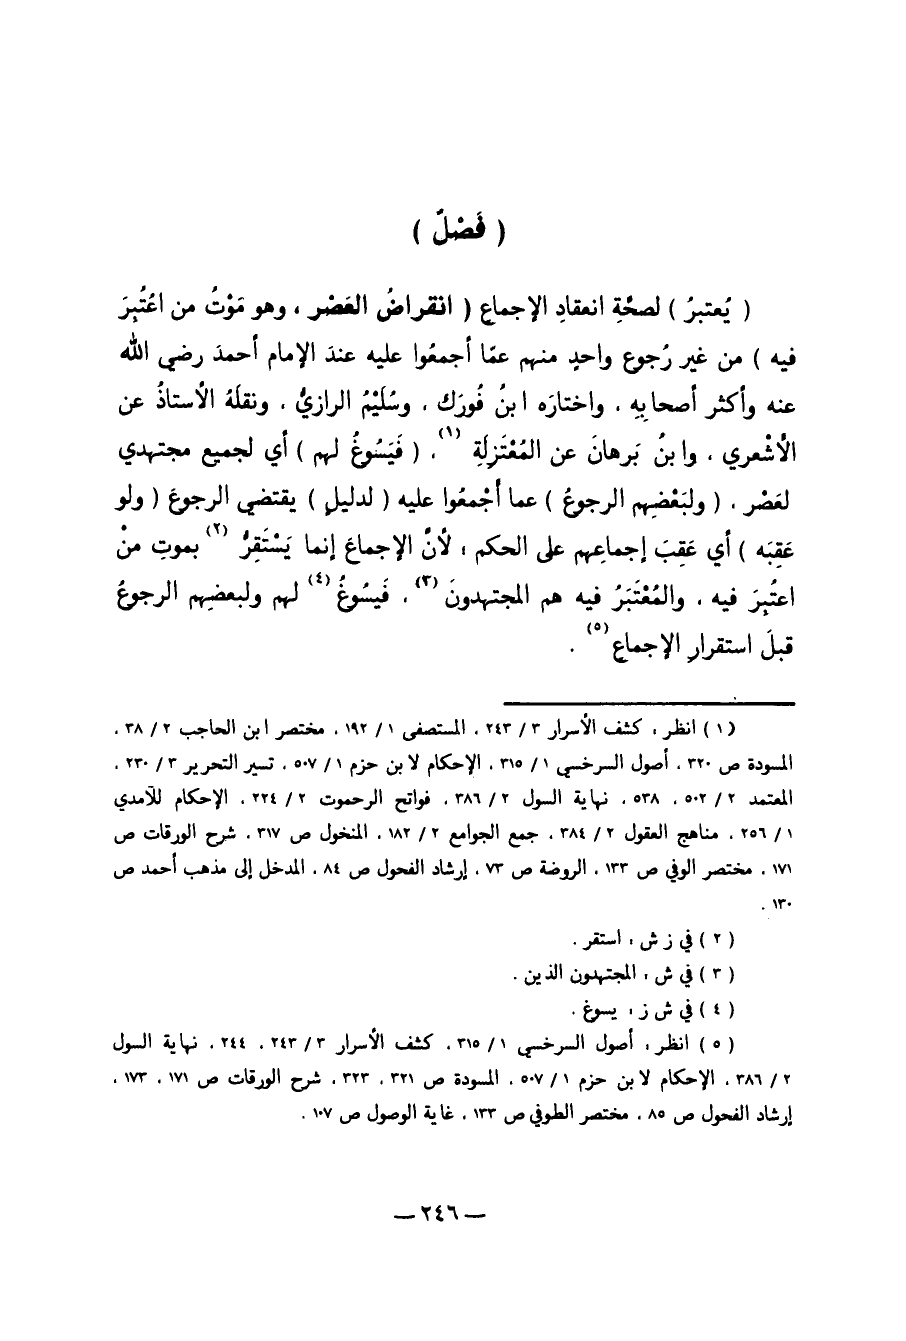 ( فَصْلٌ )
( يُعتبرُ ) لصحَّةِ انعقادِ الإجماعِ ( انقراضُ العَصْر ، وهو مَوْتُ من اعُتُبِرَ
فيه ) من غير رُجوع واحدٍ منهم عمّا أجمعُوا عليه عندَ الإمام أحمدَ رضي الله
عنه وأكثر أصحابِهِ ، واختارَه ابنُ فُورَك ، وسُلَيْمُ الرازيُّ ، ونقلَهُ الأستاذُ عن
الأشْعري ، وابنُ بَرهانَ عن المُعْتَزِلَةِ (١) ، ( فَيَسُوغُ لهم ) أي لجميع مجتهدي
لعَصْر ، ( ولبَعْضِهم الرجوعُ ) عما أجْمعُوا عليه ( لدليلٍ ) يقتضي الرجوعَ ( ولو
عَقِبَه ) أي عَقِبَ إجماعِهم على الحكم ؛ لأنَّ الإجماعَ إنما يَسْتَقِرُّ (٢) بموتِ منْ
اعتُبِرَ فيه ، والمُعْتَبَرُ فيه هم المجتهدونَ (٣) ، فَيسُوغُ (٤) لهم ولبعضِهم الرجوعُ
قبلَ استقرارِ الإجماعِ (٥) .
( ١ ) انظر : كشف الأسرار ٣ / ٢٤٣ ، المستصفى ١ / ١٩٢ ، مختصر ابن الحاجب ٢ / ٣٨ ،
المسودة ص ٣٢٠ ، أصول السرخسي ١ / ٣١٥ ، الإحكام لابن حزم ١ / ٥٠٧ ، تسير التحرير ٣ / ٢٣٠ ،
المعتمد ٢ / ٥٠٢ ، ٥٣٨ ، نهاية السول ٢ / ٣٨٦ ، فواتح الرحموت ٢ / ٢٢٤ ، الإحكام للآمدي
١ / ٢٥٦ ، مناهج العقول ٢ / ٣٨٤ ، جمع الجوامع ٢ / ١٨٢ ، المنخول ص ٣١٧ ، شرح الورقات ص
١٧١ ، مختصر الوفي ص ١٣٣ ، الروضة ص ٧٣ ، إرشاد الفحول ص ٨٤ ، المدخل إلى مذهب أحمد ص
١٣٠ .
( ٢ ) في ز ش : استقر .
( ٣ ) في ش : المجتهدون الذين .
( ٤ ) في ش ز : يسوغ .
( ٥ ) انظر : أصول السرخسي ١ / ٣١٥ ، كشف الأسرار ٣ / ٢٤٣ ، ٢٤٤ ، نهاية السول
٢ / ٣٨٦ ، الإحكام لابن حزم ١ / ٥٠٧ ، المسودة ص ٣٢١ ، ٣٢٣ ، شرح الورقات ص ١٧١ ، ١٧٣ ،
إرشاد الفحول ص ٨٥ ، مختصر الطوفي ص ١٣٣ ، غاية الوصول ص ١٠٧ .
— ٢٤٦ —